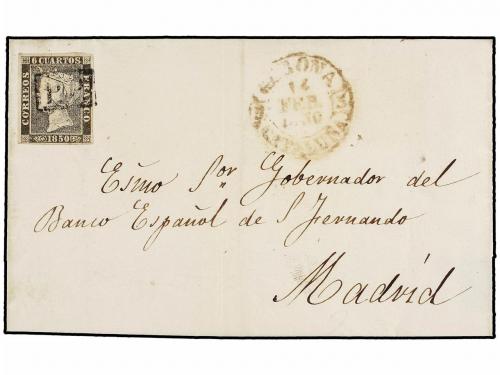 6 CUARTOS
CORREOS
FRANCO
1850
GERONA
14
FEB
1850
CATALUÑA
Esmo Sor Gobernador del
Banco Español de S. Fernando
Madrid